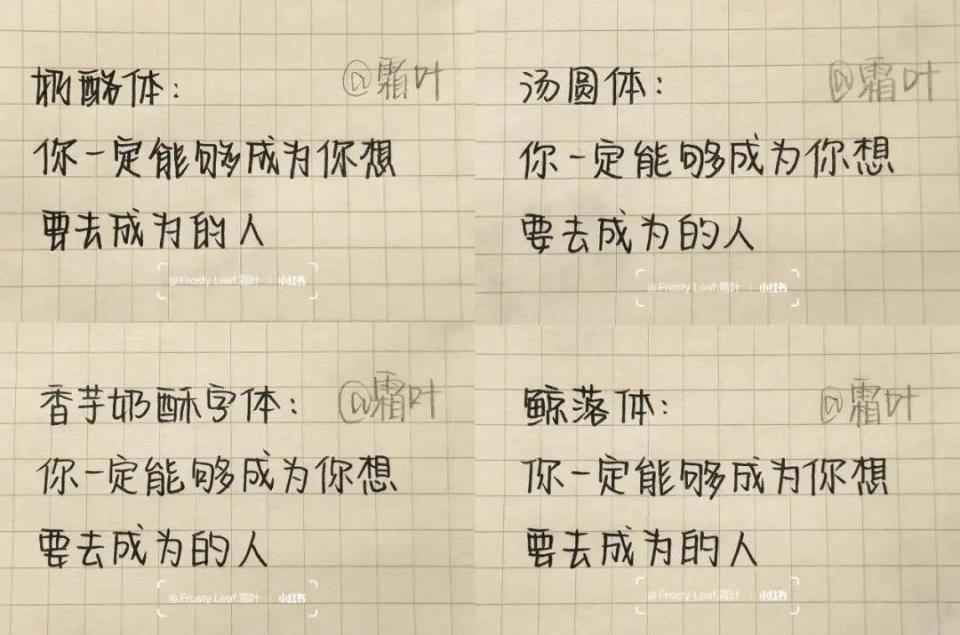 奶酪体：
@霜叶
你一定能够成为你想
要去成为的人
@Frosty Leaf.霜叶 小红书
汤圆体：
@霜叶
你一定能够成为你想
要去成为的人
@Frosty Leaf.霜叶 小红书
香芋奶酥字体：
@霜叶
你一定能够成为你想
要去成为的人
@Frosty Leaf.霜叶 小红书
鲸落体：
@霜叶
你一定能够成为你想
要去成为的人
@Frosty Leaf.霜叶 小红书